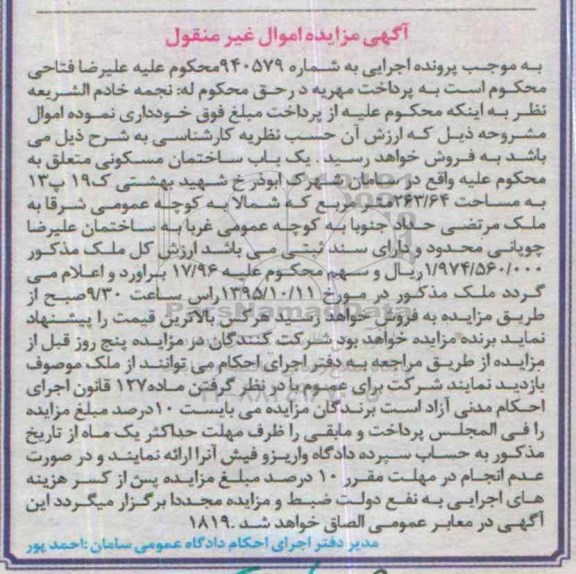 آگهی مزایده اموال غیر منقول
به موجب پرونده اجرایی به شماره ۹۴۰۵۷۹محکوم علیه علیرضا فتاحی
محکوم است به پرداخت مهریه د رحق محکوم له: نجمه خادم الشریعه
نظر به اینکه محکوم علیه از پرداخت مبلغ فوق خودداری نموده اموال
مشروحه ذیل که ارزش آن حسب نظریه کارشناسی به شرح ذیل می
باشد به فروش خواهد رسید . یک باب ساختمان مسکونی متعلق به
محکوم علیه واقع در سامان شهرک ابوذر خ شهید بهشتی ک۱۹ پ۱۳
به مساحت ۲۶۳/۶۴متر مربع که شمالا به کوچه عمومی شرقا به
ملک مرتضی حداد جنوبا به کوچه عمومی غربا به ساختمان علیرضا
چوپانی محدود و دارای سند ثبتی می باشد ارزش کل ملک مذکور
۱/۹۷۴/۵۶۰/۰۰۰ریال و سهم محکوم علیه ۱۷/۹۶ براورد و اعلام می
گردد ملک مذکور در مورخ ۱۳۹۵/۱۰/۱۱راس ساعت ۹/۳۰صبح از
طریق مزایده به فروش خواهد رسید هرکس بالاترین قیمت را پیشنهاد
نماید برنده مزایده خواهد بود شرکت کنندگان در مزایده پنج روز قبل از
مزایده از طریق مراجعه به دفتر اجرای احکام می توانند از ملک موصوف
بازدید نمایند شرکت برای عموم با در نظر گرفتن ماده۱۲۷ قانون اجرای
احکام مدنی آزاد است برندگان مزایده می بایست ۱۰درصد مبلغ مزایده
را فی المجلس پرداخت و مابقی را ظرف مهلت حداکثر یک ماه از تاریخ
مذکور به حساب سپرده دادگاه واریز و فیش آنرا ارائه نمایند و در صورت
عدم انجام در مهلت مقرر ۱۰ درصد مبلغ مزایده پس از کسر هزینه
های اجرایی به نفع دولت ضبط و مزایده مجددا برگزار میگردد این
آگهی در معابر عمومی الصاق خواهد شد .۱۸۱۹
مدیر دفتر اجرای احکام دادگاه عمومی سامان :احمد پور